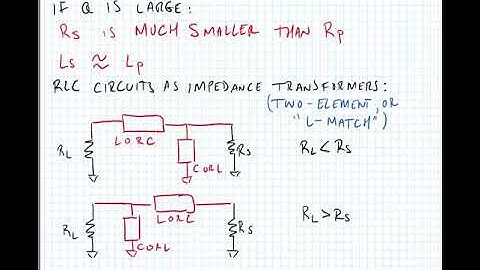 IF Q IS LARGE:
Rs IS MUCH SMALLER THAN Rp
Ls ≈ Lp
RLC CIRCUITS AS IMPEDANCE TRANSFORMERS:
(TWO-ELEMENT, OR
"L-MATCH")
L OR C
RL
C OR L
Rs
RL < Rs
L OR C
RL
C OR L
Rs
RL > Rs